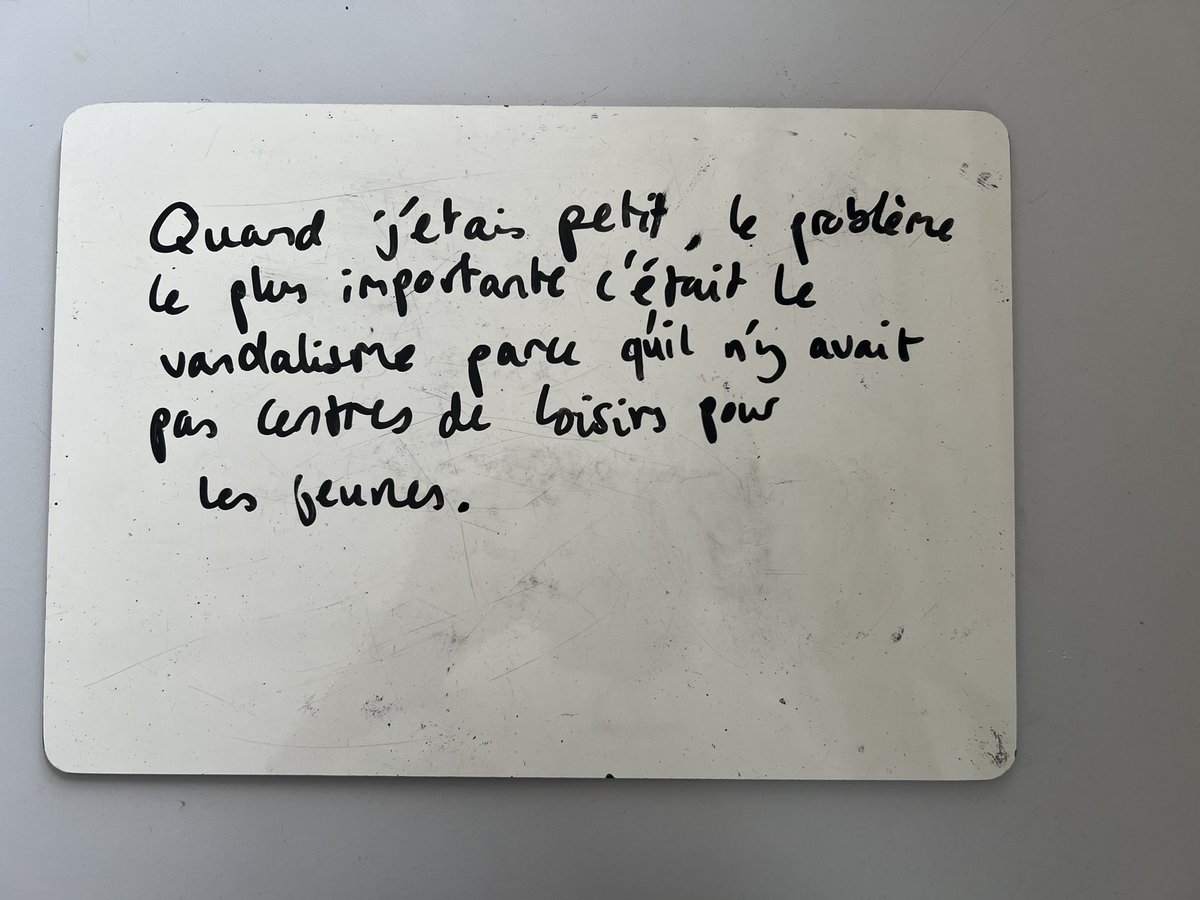 Quand j'étais petit, le problème
le plus importante c'était le
vandalisme parce qu'il n'y avait
pas centres de loisirs pour
les jeunes.